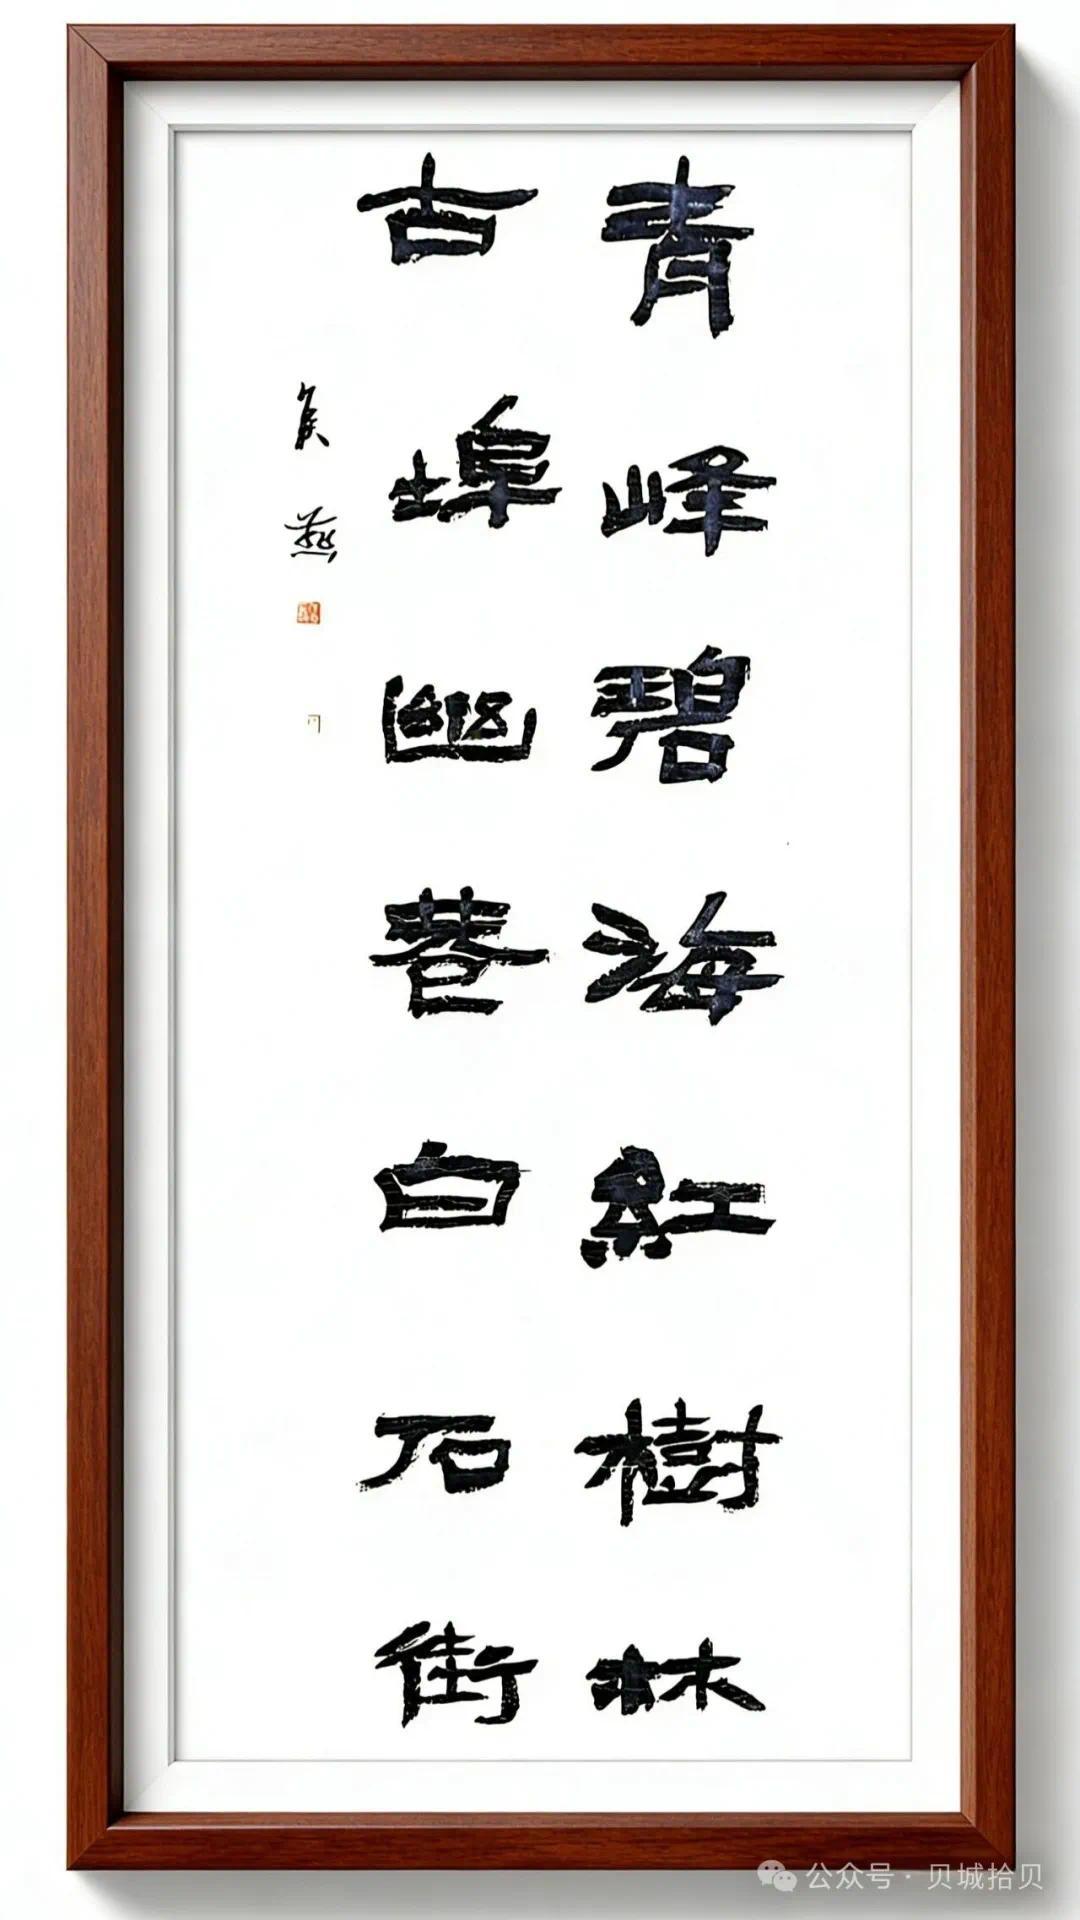 青峰碧海紅樹林
古埠幽巷白石街
侯燕
公众号·贝城拾贝